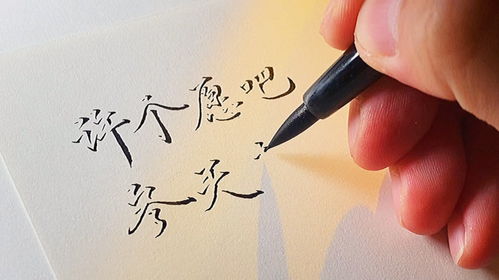 许个愿吧
冬天